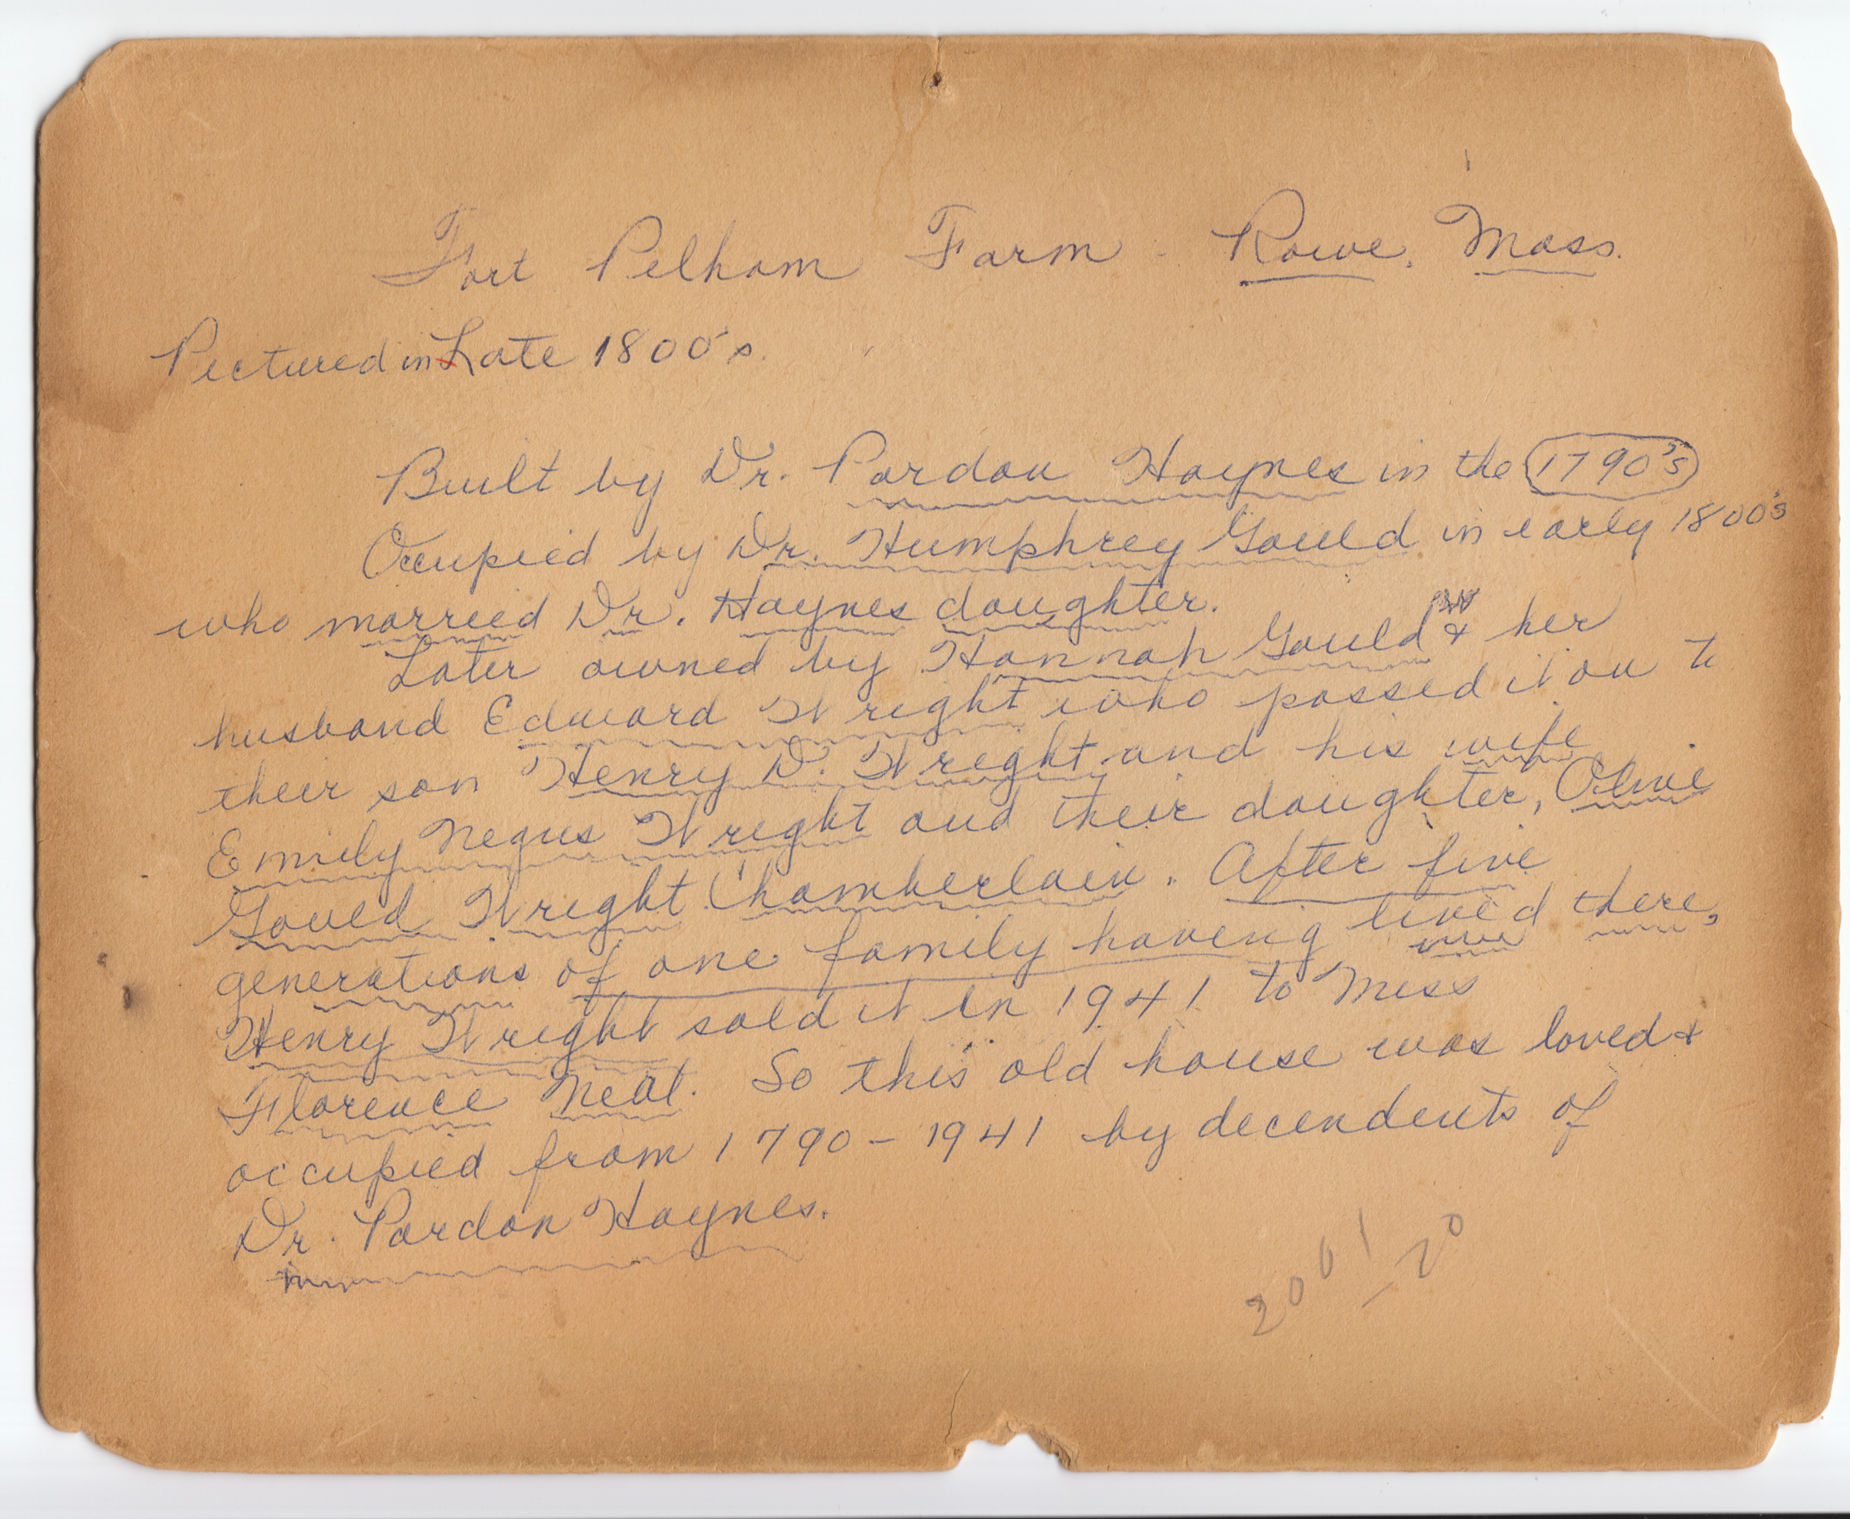 Fort Pelham Farm - Rowe, Mass.
Pictured in Late 1800's.
Built by Dr. Pardon Haynes in the 1790's
Occupied by Dr. Humphrey Gould in early 1800's
who married Dr. Haynes daughter.
Later owned by Hannah Gould & her
husband Edward Wright who passed it on to
their son Henry D. Wright and his wife
Emily Negus Wright and their daughter, Olive
Gould Wright Chamberlain. After five
generations of one family having lived there,
Henry Wright sold it in 1941 to Miss
Florence Neal. So this old house was loved &
occupied from 1790 - 1941 by decendents of
Dr. Pardon Haynes.
2001-20